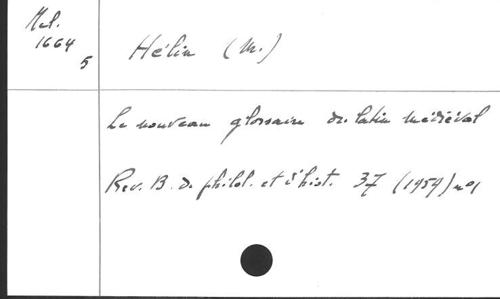 Mel.
1664
5
Hélin (M.)
Le nouveau glossaire du latin médiéval
Rev. B. de philol. et d'hist. 37 (1959) no 1